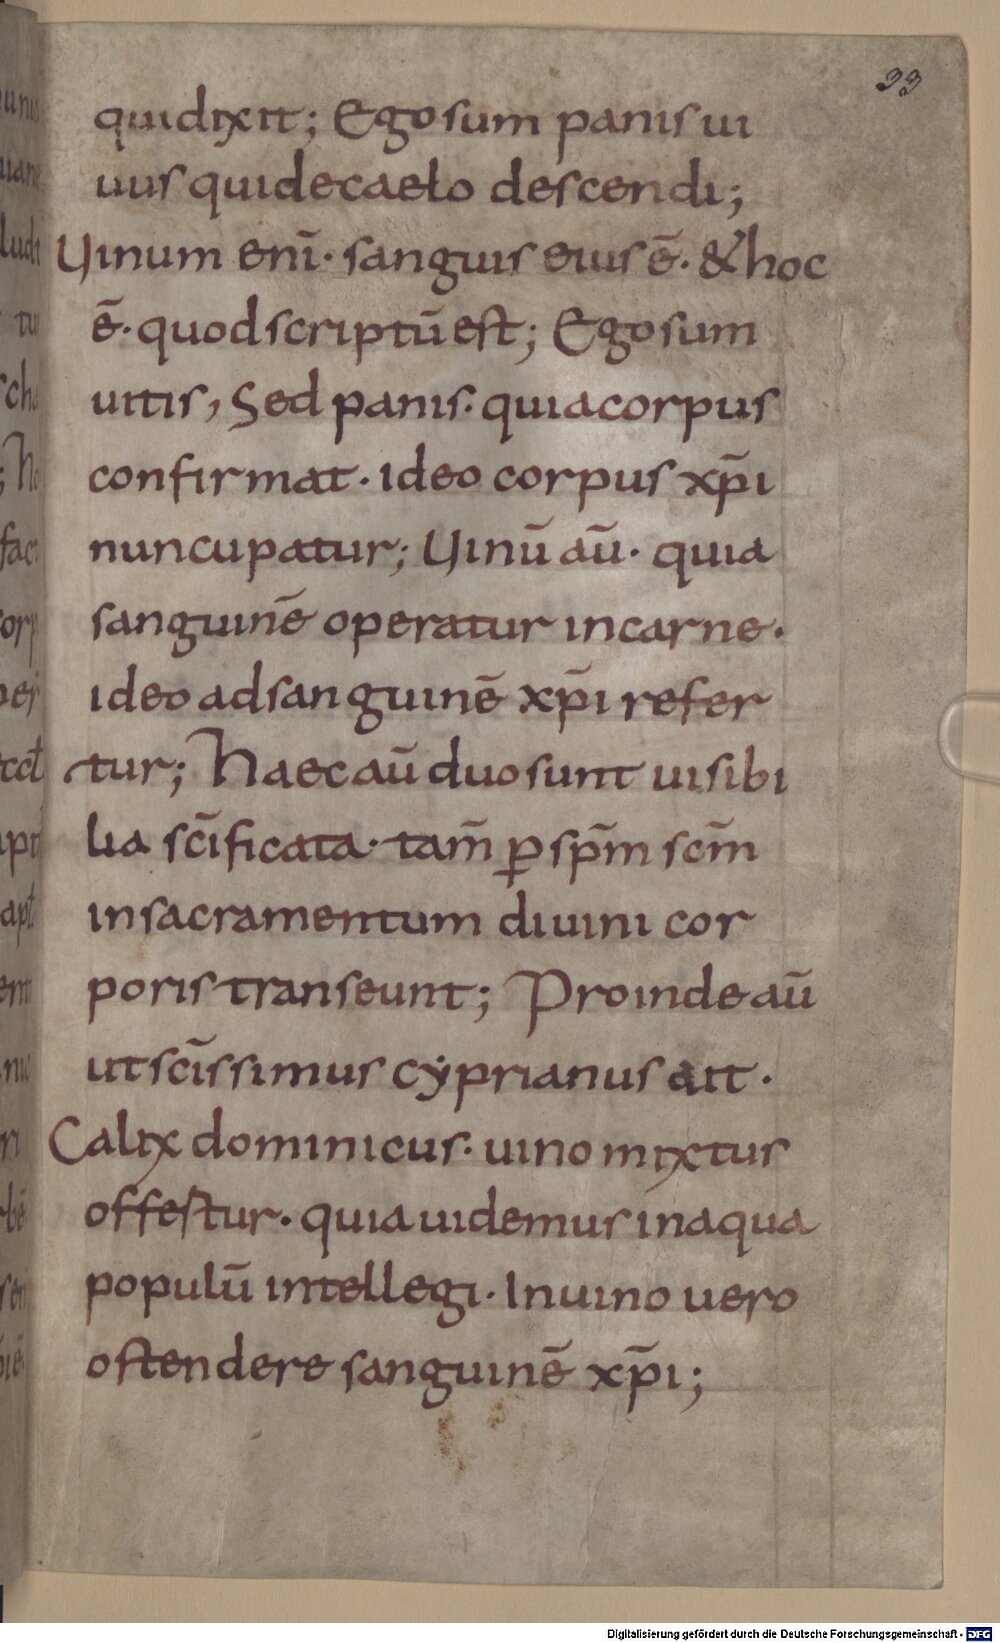 33
quidixit; Ego sum panis ui
uus qui de caelo descendi;
Uinum enī· sanguis eius ē· & hoc
ē· quod scriptū est; Ego sum
uitis, Sed panis· quia corpus
confirmat· ideo corpus xp̄i
nuncupatur; Uinū aū· quia
sanguinē operatur in carne·
ideo ad sanguinē xp̄i refer
tur; Haec aū duo sunt uisibi
lia scīficata· tam̄ ꝑ sp̄m scm̄
in sacramentum diuini cor
poris transeunt; Proinde aū
ut scīssimus cyprianus ait·
Calix dominicus· uino mixtus
offestur· quia uidemus in aqua
populū intellegi· In uino uero
ostendere sanguinē xp̄i;
Digitalisierung gefördert durch die Deutsche Forschungsgemeinschaft - DFG